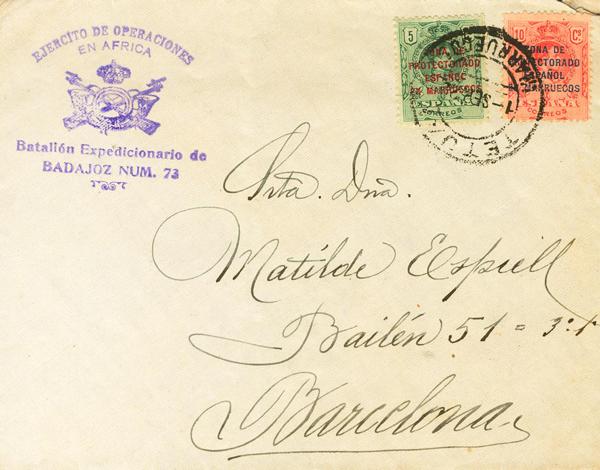 EJERCITO DE OPERACIONES
EN AFRICA
Batallón Expedicionario de
BADAJOZ NUM. 73
5
ZONA DE
PROTECTORADO
ESPAÑOL
EN MARRUECOS
CORREOS
10 Cs
ZONA DE
PROTECTORADO
ESPAÑOL
EN MARRUECOS
CORREOS
TETU
MARRUECOS
1-SEP
Srta. Dña.
Matilde Espiell
Bailén 51 = 3º 1ª
Barcelona